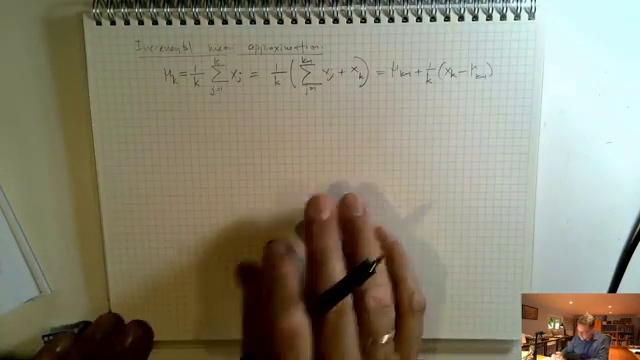 Incremental mean approximation:
μ_k = 1/k ∑_{j=1}^{k} x_j = 1/k ( ∑_{j=1}^{k-1} x_j + x_k ) = μ_{k-1} + 1/k (x_k - μ_{k-1})